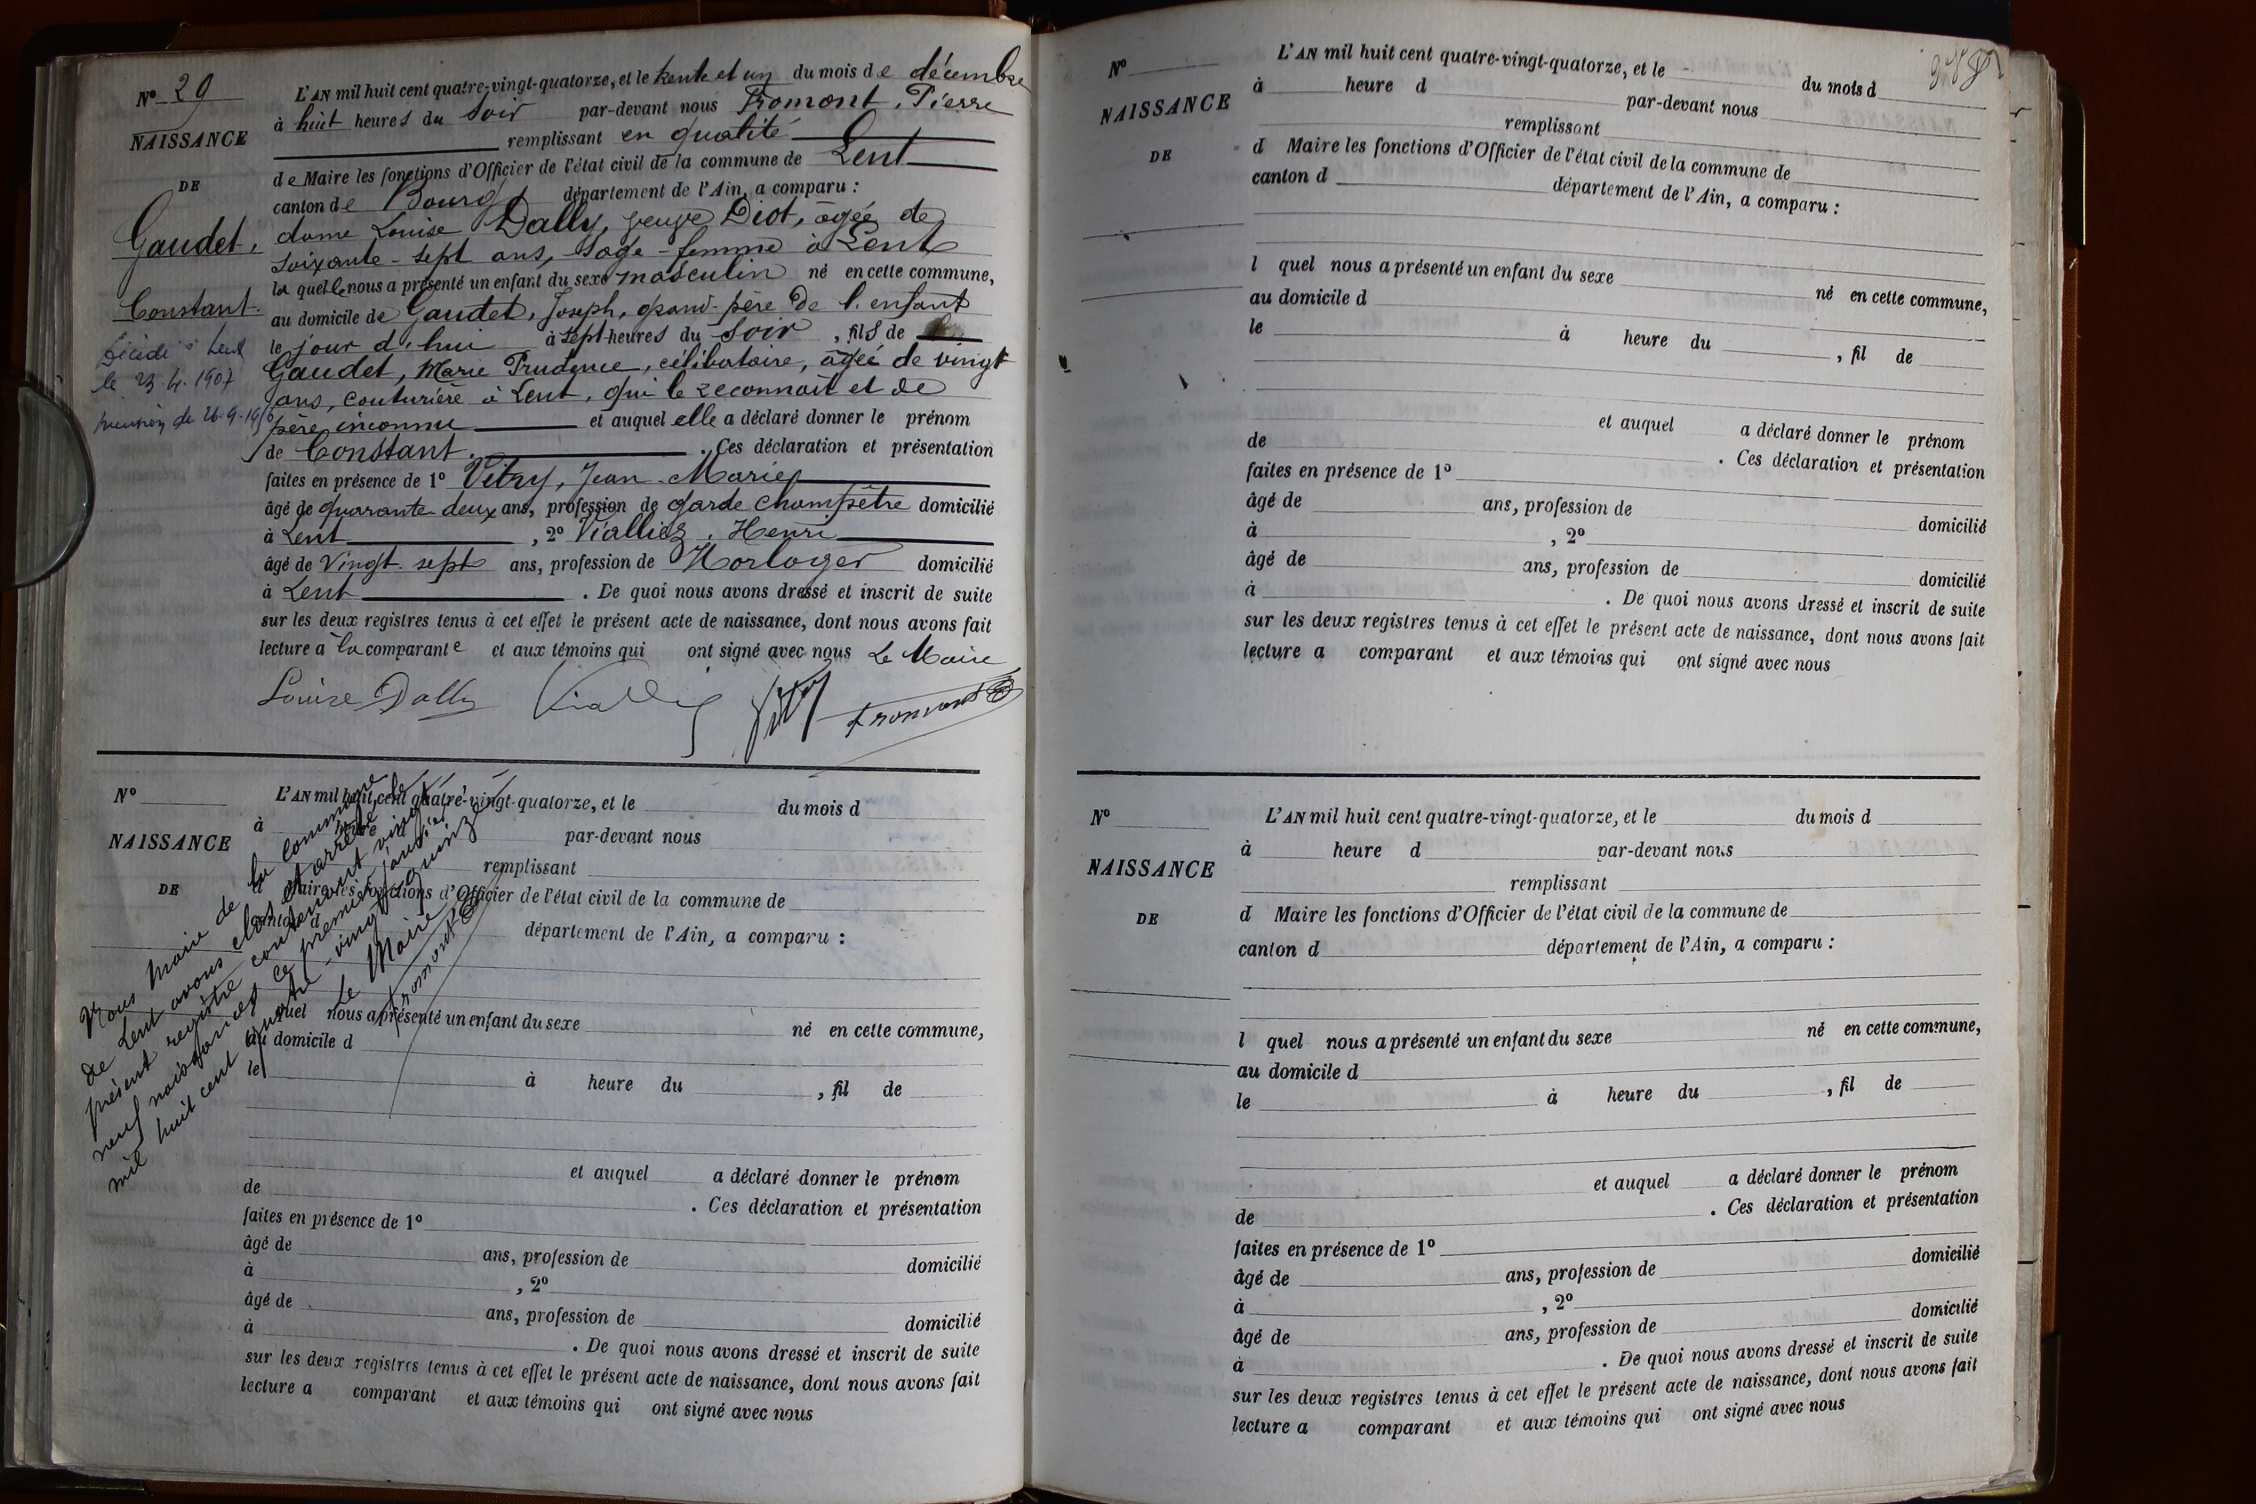 Nº 29
NAISSANCE
DE
Gaudet,
Constant.
Décédé à Lent
le 23.4.1907
mention de 26.9.1956
L'AN mil huit cent quatre-vingt-quatorze, et le trente et un du mois de décembre
à huit heures du soir par-devant nous Fromont, Pierre
remplissant en qualité
de Maire les fonctions d'Officier de l'état civil de la commune de Lent
canton de Bourg département de l'Ain, a comparu :
dame Louise Dally, veuve Diot, âgée de
soixante-sept ans, sage-femme à Lent
laquelle nous a présenté un enfant du sexe masculin né en cette commune,
au domicile de Gaudet, Joseph, grand-père de l'enfant
le jour d'hui à sept heures du soir, fils de
Gaudet, Marie Prudence, célibataire, âgée de vingt
ans, couturière à Lent, qui le reconnait et de
père inconnu et auquel elle a déclaré donner le prénom
de Constant. . Ces déclaration et présentation
faites en présence de 1º Vitry, Jean-Marie
âgé de quarante deux ans, profession de garde champêtre domicilié
à Lent, 2º Viallier, Henri
âgé de Vingt-sept ans, profession de Horloger domicilié
à Lent. De quoi nous avons dressé et inscrit de suite
sur les deux registres tenus à cet effet le présent acte de naissance, dont nous avons fait
lecture à la comparante et aux témoins qui ont signé avec nous Le Maire
Louise Dally Viallier Vitry Fromont
Nº
NAISSANCE
DE
L'AN mil huit cent quatre-vingt-quatorze, et le du mois d
à heure d par-devant nous
remplissant
d Maire les fonctions d'Officier de l'état civil de la commune de
canton d département de l'Ain, a comparu :
l quel nous a présenté un enfant du sexe né en cette commune,
au domicile d
le à heure du , fil de
et auquel a déclaré donner le prénom
de . Ces déclaration et présentation
faites en présence de 1º
âgé de ans, profession de domicilié
à , 2º
âgé de ans, profession de domicilié
à . De quoi nous avons dressé et inscrit de suite
sur les deux registres tenus à cet effet le présent acte de naissance, dont nous avons fait
lecture a comparant et aux témoins qui ont signé avec nous
Nous Maire de la commune
de Lent avons clos et arrêté le
présent registre contenant vingt
neuf naissances ce premier janvier
mil huit cent quatre-vingt quinze
Le Maire
Fromont
Nº
NAISSANCE
DE
L'AN mil huit cent quatre-vingt-quatorze, et le du mois d
à heure d par-devant nous
remplissant
d Maire les fonctions d'Officier de l'état civil de la commune de
canton d département de l'Ain, a comparu :
l quel nous a présenté un enfant du sexe né en cette commune,
au domicile d
le à heure du , fil de
et auquel a déclaré donner le prénom
de . Ces déclaration et présentation
faites en présence de 1º
âgé de ans, profession de domicilié
à , 2º
âgé de ans, profession de domicilié
à . De quoi nous avons dressé et inscrit de suite
sur les deux registres tenus à cet effet le présent acte de naissance, dont nous avons fait
lecture a comparant et aux témoins qui ont signé avec nous
Nº
NAISSANCE
DE
L'AN mil huit cent quatre-vingt-quatorze, et le du mois d
à heure d par-devant nous
remplissant
d Maire les fonctions d'Officier de l'état civil de la commune de
canton d département de l'Ain, a comparu :
l quel nous a présenté un enfant du sexe né en cette commune,
au domicile d
le à heure du , fil de
et auquel a déclaré donner le prénom
de . Ces déclaration et présentation
faites en présence de 1º
âgé de ans, profession de domicilié
à , 2º
âgé de ans, profession de domicilié
à . De quoi nous avons dressé et inscrit de suite
sur les deux registres tenus à cet effet le présent acte de naissance, dont nous avons fait
lecture a comparant et aux témoins qui ont signé avec nous